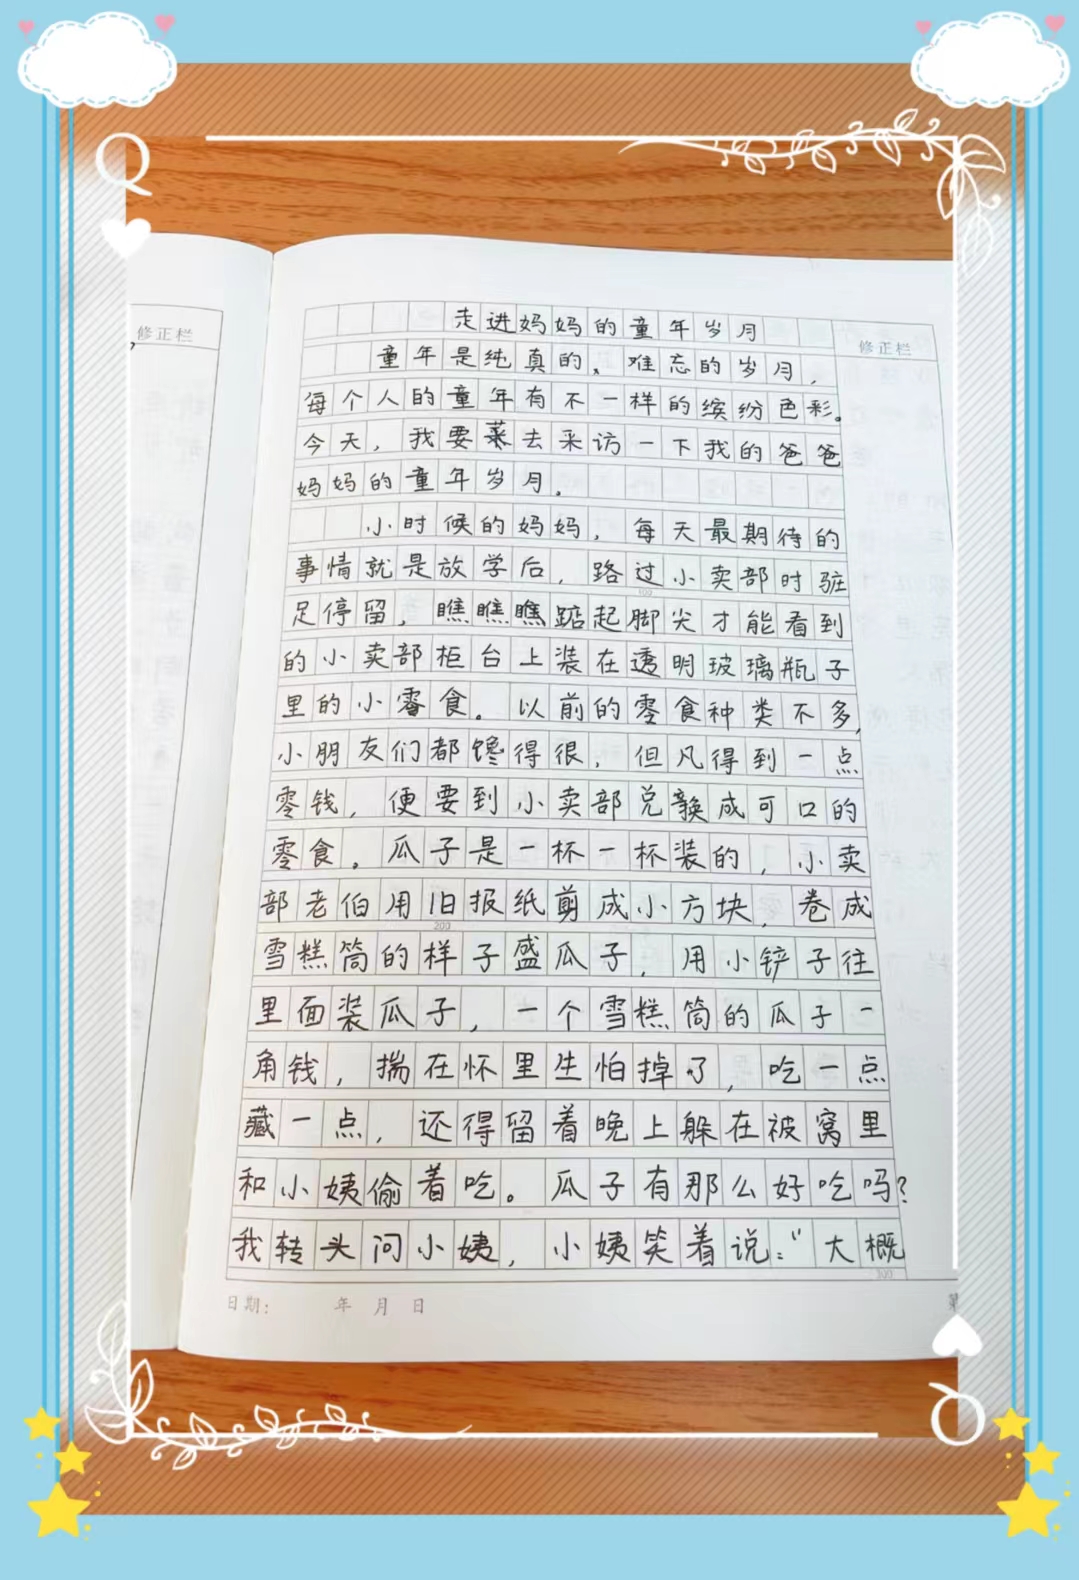 Q
修正栏
走进妈妈的童年岁月
修正栏
童年是纯真的、难忘的岁月，
每个人的童年有不一样的缤纷色彩。
今天，我要来去采访一下我的爸爸
妈妈的童年岁月。
小时候的妈妈，每天最期待的
事情就是放学后，路过小卖部时驻
100
足停留，瞧瞧瞧踮起脚尖才能看到
的小卖部柜台上装在透明玻璃瓶子
里的小零食。以前的零食种类不多，
小朋友们都馋得很，但凡得到一点
零钱，便要到小卖部兑换成可口的
零食。瓜子是一杯一杯装的，小卖
部老伯用旧报纸剪成小方块，卷成
200
雪糕筒的样子盛瓜子，用小铲子往
里面装瓜子，一个雪糕筒的瓜子一
角钱，揣在怀里生怕掉了，吃一点
藏一点，还得留着晚上躲在被窝里
和小姨偷着吃。瓜子有那么好吃吗？
我转头问小姨，小姨笑着说：“大概
300
日期：　年　月　日
第
Q